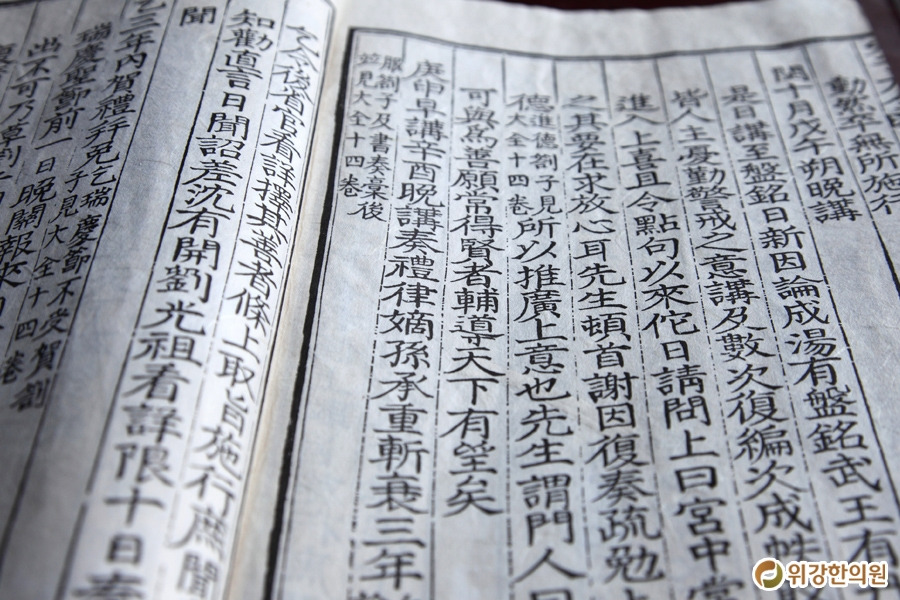 動然卒無所施行
閏十月戊午朔晚講
是日講至盤銘日新因論成湯有盤銘武王有
皆人主憂勤警戒之意講及數次復編次成帙
進入上喜且令點句以來佗日請問上曰宮中嘗
之其要在求放心耳先生頓首謝因復奏疏勉上
德進德劄子見大全十四卷所以推廣上意也先生謂門人曰
可與爲善願常得賢者輔導天下有望矣
庚申早講辛酉晚講奏禮律嫡孫承重斬衰三年
服劄子及書奏藁後
並見大全十四卷
令後省官看詳擇其善者條上取旨施行庶聞
知勸直言日聞詔差沈有開劉光祖看詳限十日
聞
乙三年內賀禮幷免乞瑞慶節不受賀劄
瑞慶聖節前一日晚關報來
子見大全十四卷
出不可乃草
위강한의원